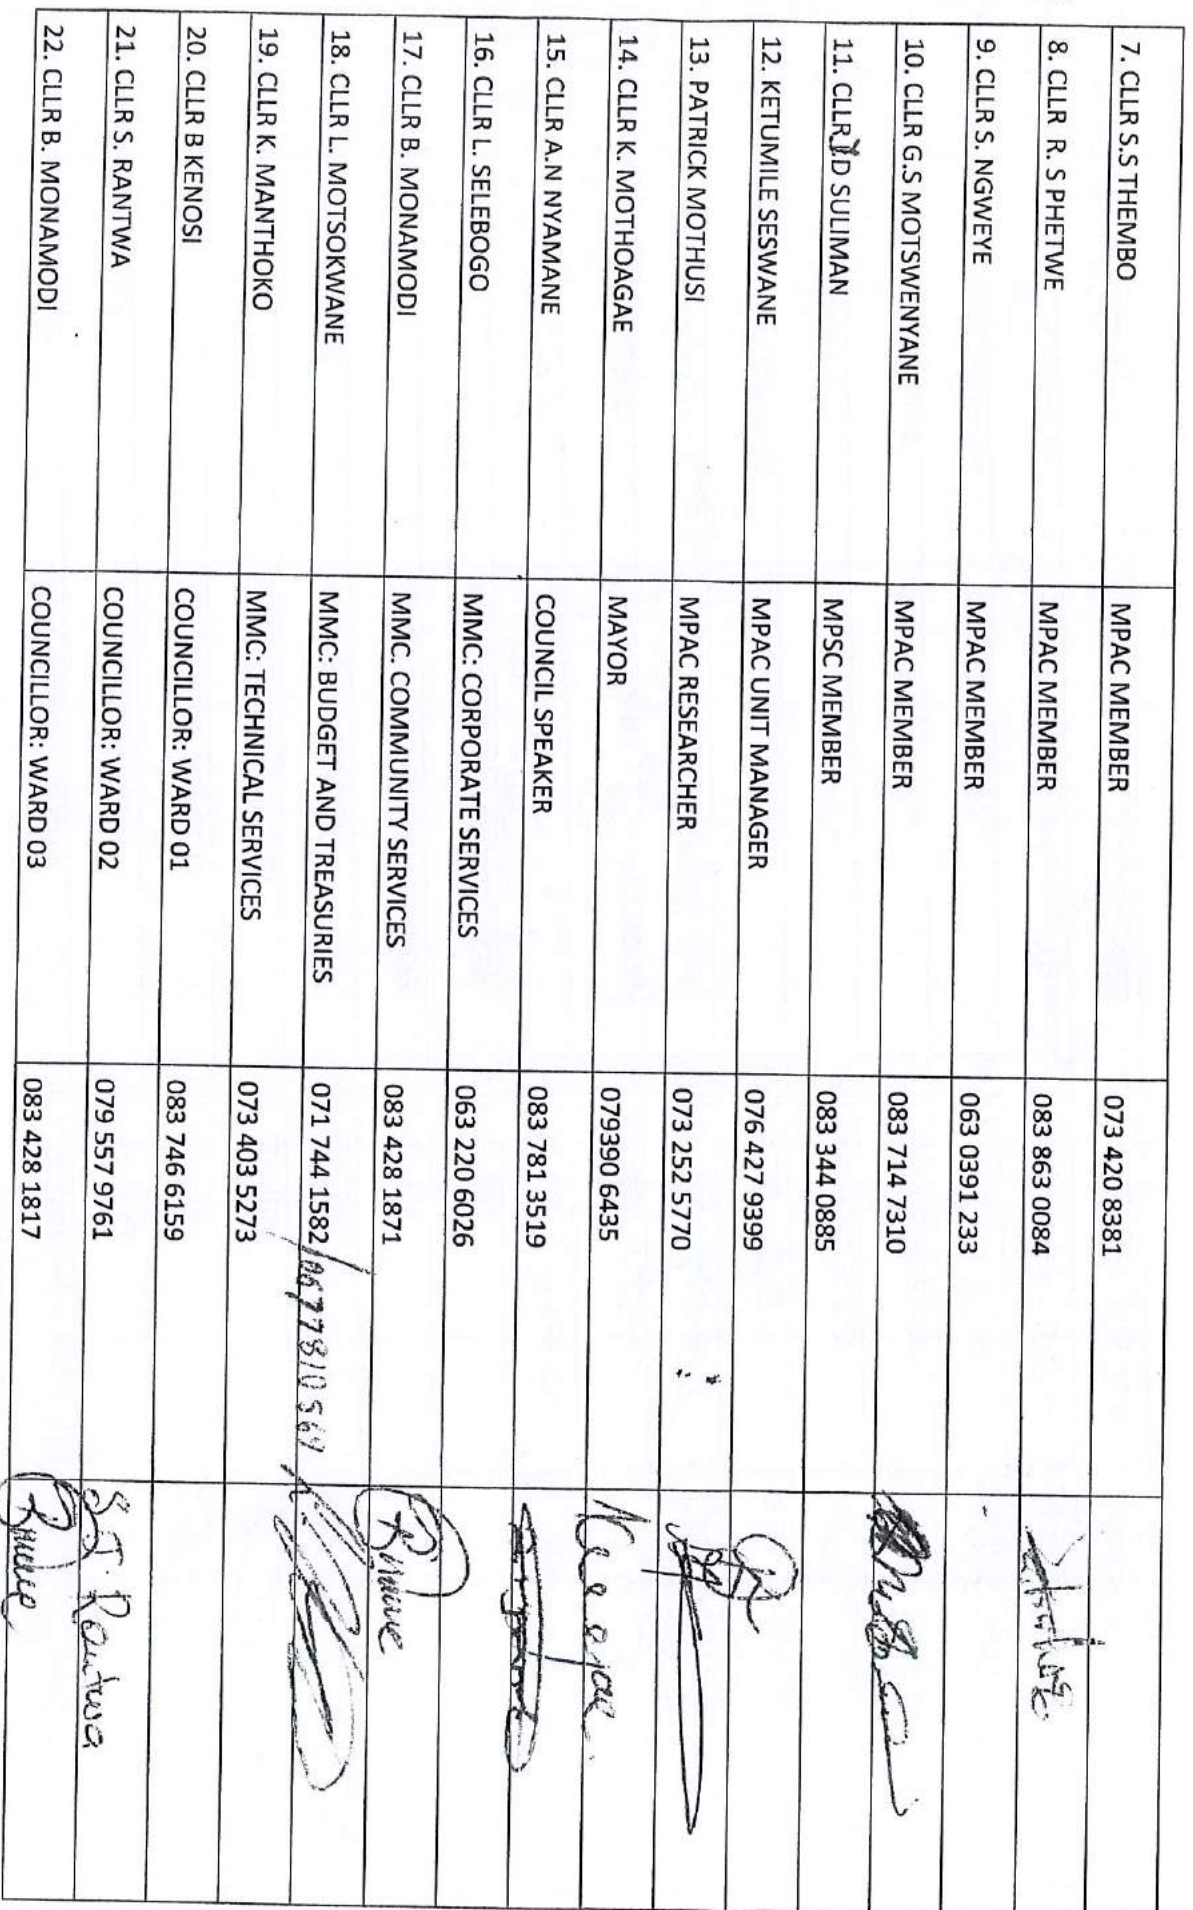 7. CLLR S.S THEMBO MPAC MEMBER 073 420 8381
8. CLLR R. S PHETWE MPAC MEMBER 083 863 0084
9. CLLR S. NGWEYE MPAC MEMBER 063 0391 233
10. CLLR G.S MOTSWENYANE MPAC MEMBER 083 714 7310
11. CLLR Y.D SULIMAN MPSC MEMBER 083 344 0885
12. KETUMILE SESWANE MPAC UNIT MANAGER 076 427 9399
13. PATRICK MOTHUSI MPAC RESEARCHER 073 252 5770
14. CLLR K. MOTHOAGAE MAYOR 079390 6435
15. CLLR A.N NYAMANE COUNCIL SPEAKER 083 781 3519
16. CLLR L. SELEBOGO MMC: CORPORATE SERVICES 063 220 6026
17. CLLR B. MONAMODI MMC. COMMUNITY SERVICES 083 428 1871
18. CLLR L. MOTSOKWANE MMC: BUDGET AND TREASURIES 071 744 1582/0677810567
19. CLLR K. MANTHOKO MMC: TECHNICAL SERVICES 073 403 5273
20. CLLR B KENOSI COUNCILLOR: WARD 01 083 746 6159
21. CLLR S. RANTWA COUNCILLOR: WARD 02 079 557 9761 S.J. Rantwa
22. CLLR B. MONAMODI COUNCILLOR: WARD 03 083 428 1817